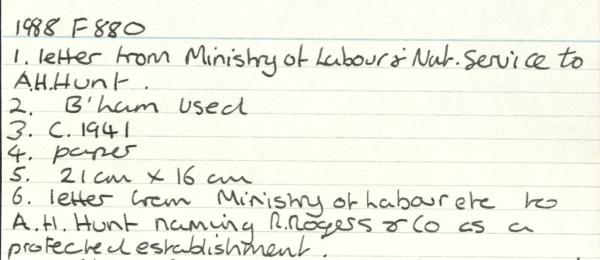 1988 F 880
1. letter from Ministry of Labour & Nat. Service to
A.H. Hunt.
2. B'ham used
3. C. 1941
4. paper
5. 21cm x 16 cm
6. letter from Ministry of Labour etc to
A.H. Hunt naming R. Rogers & Co as a
protected establishment.